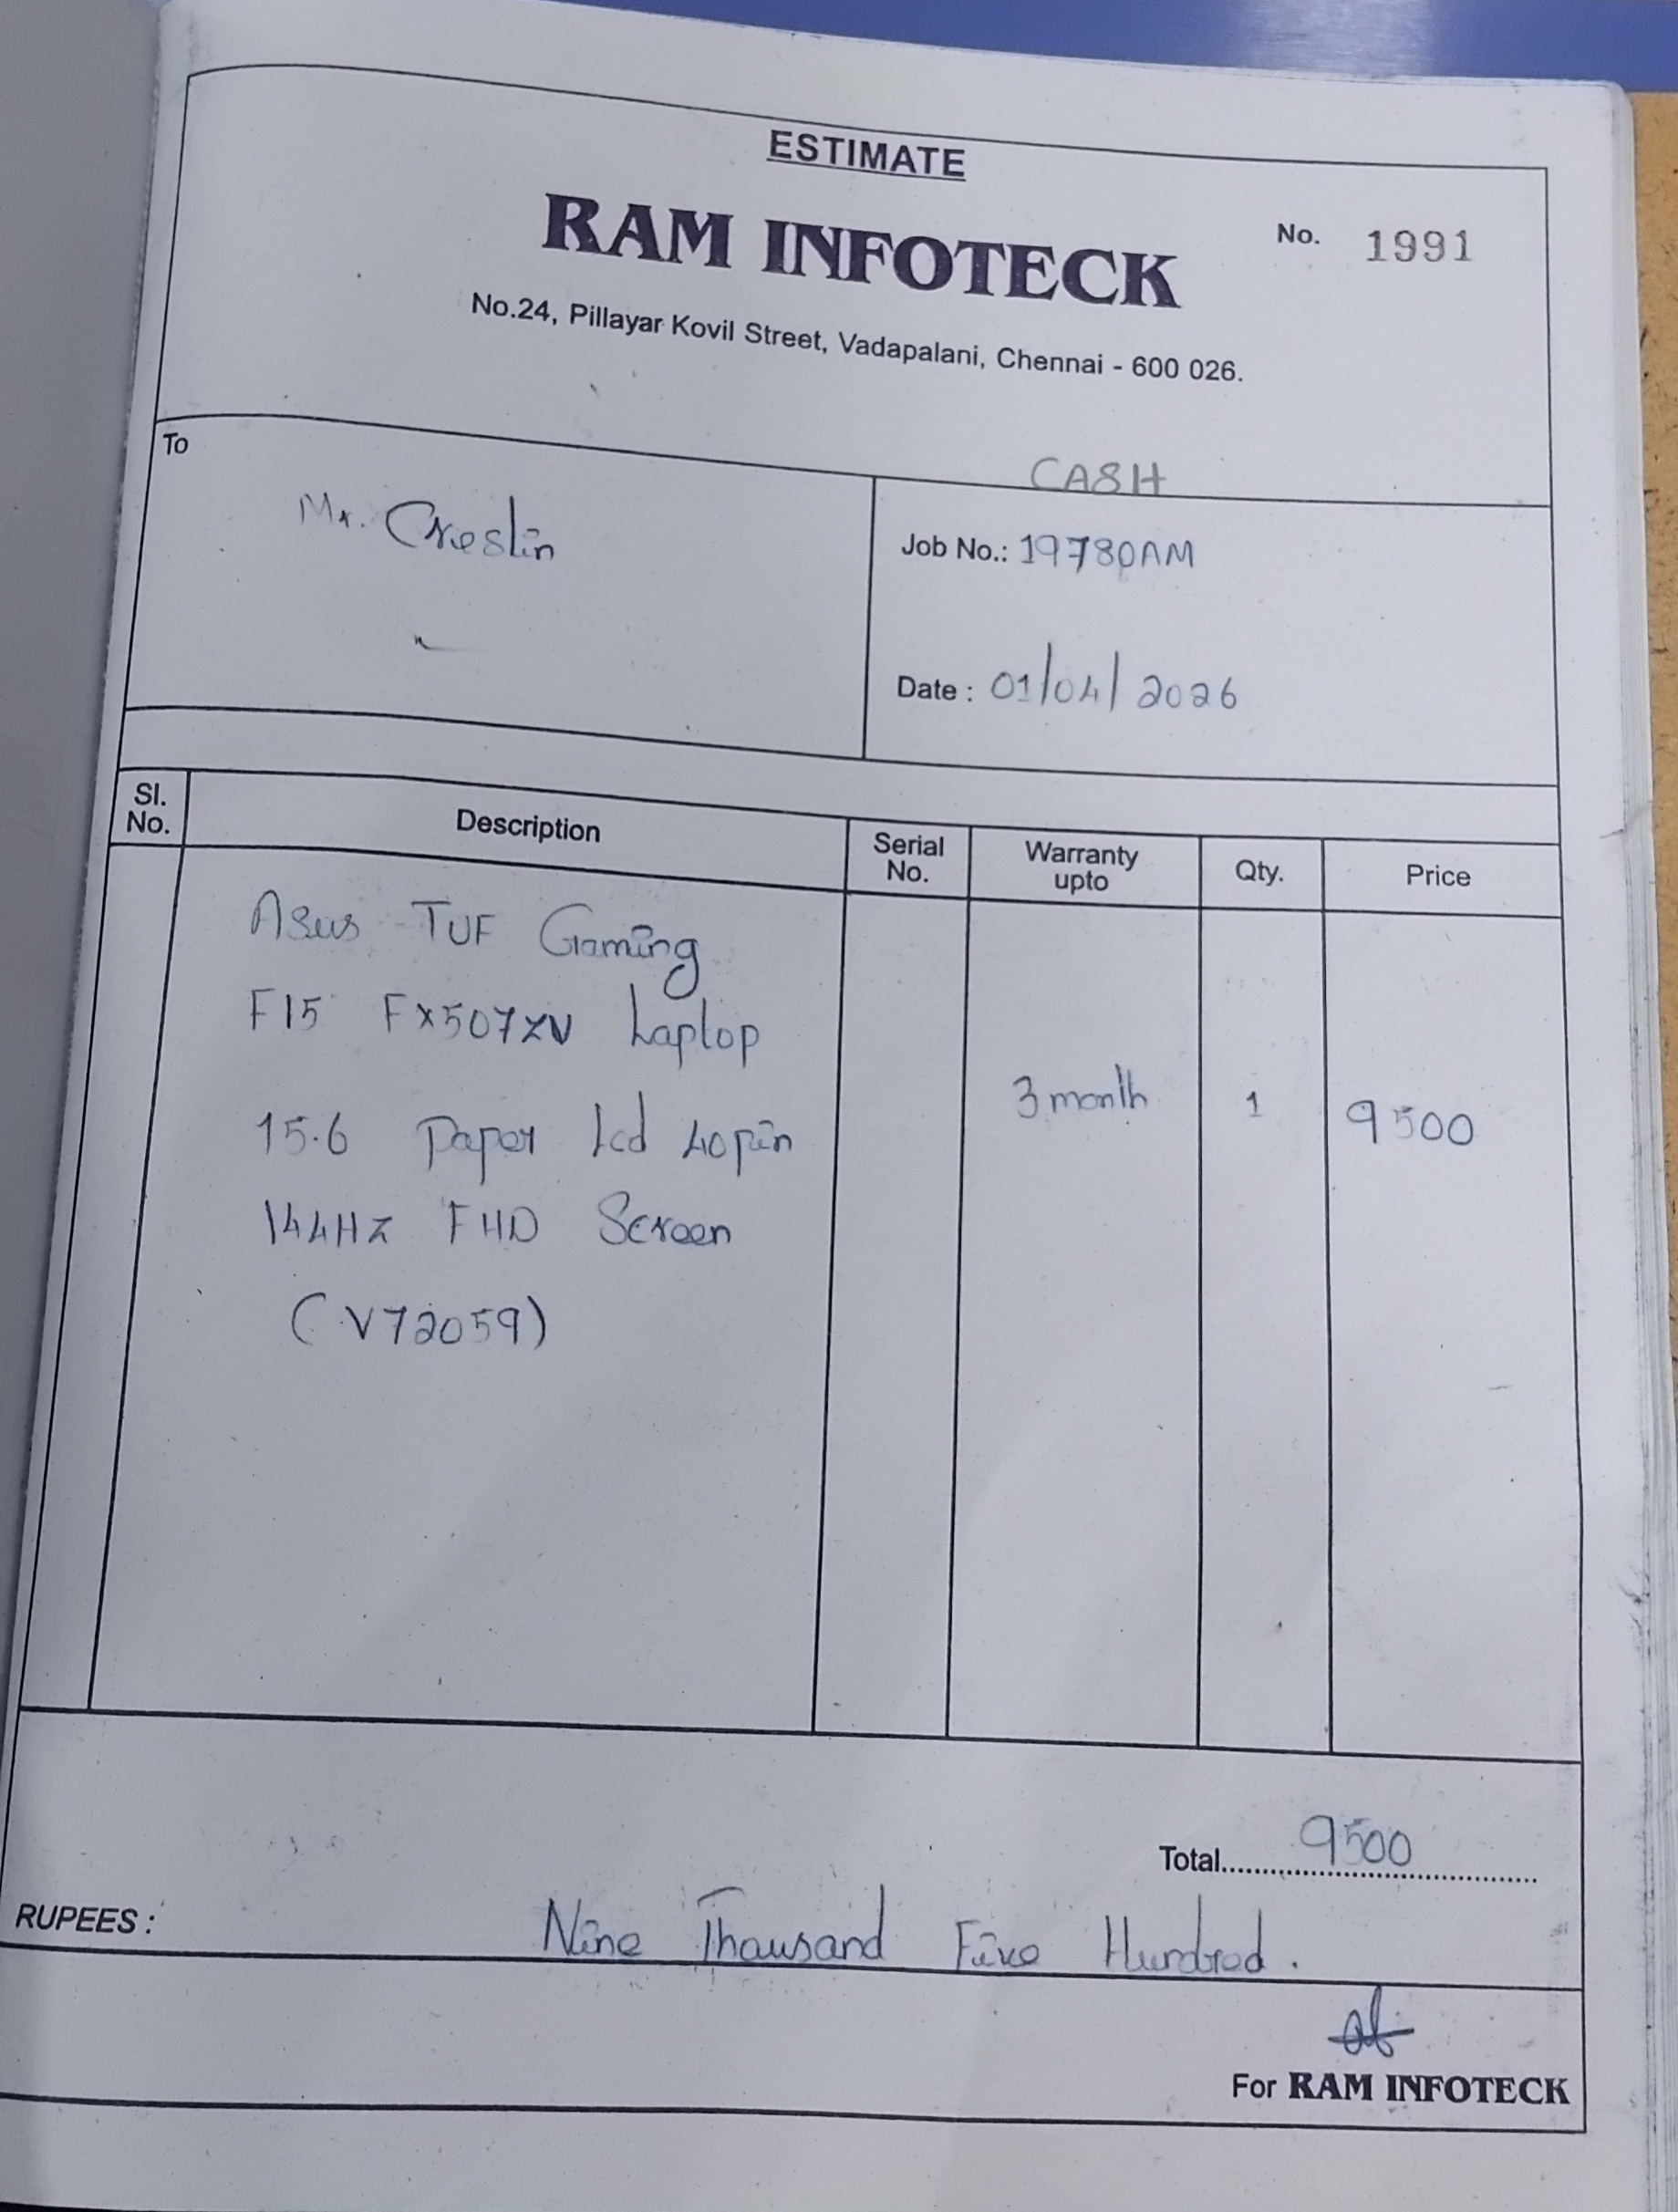 ESTIMATE
RAM INFOTECK
No. 1991
No.24, Pillayar Kovil Street, Vadapalani, Chennai - 600 026.
To
CASH
Mr. Creslin
Job No.: 19780AM
Date : 01/04/2026
Sl. No. Description Serial No. Warranty upto Qty. Price
Asus TUF Gaming
F15 FX507ZV Laptop
15.6 Paper Lcd 40pin 3 month 1 9500
144HZ FHD Screen
(V72059)
Total 9500
RUPEES : Nine Thousand Five Hundred.
For RAM INFOTECK